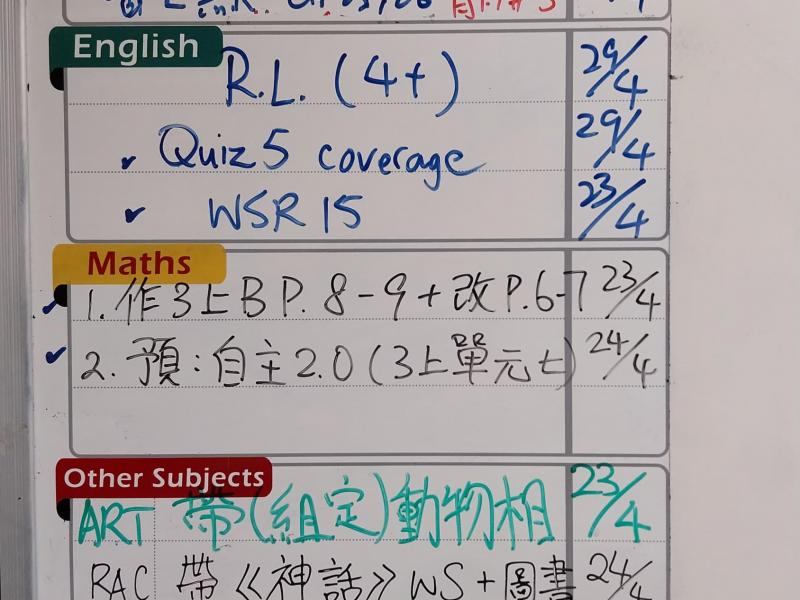 English
R.L. (4+) 29/4
✓ Quiz 5 coverage 29/4
✓ WSR 15 23/4
Maths
✓ 1. 作3上B P. 8-9+改P.6-7 23/4
✓ 2. 預:自主2.0(3上單元七) 24/4
Other Subjects
ART 帶(組定)動物相 23/4
RAC 帶《神話》WS+圖書 24/4